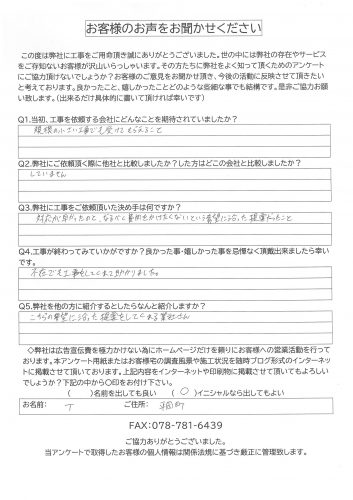 お客様のお声をお聞かせください
この度は弊社に工事をご用命頂き誠にありがとうございました。世の中には弊社の存在やサービス
をご存知ないお客様が沢山いらっしゃいます。その方たちに弊社をよく知って頂くためのアンケート
にご協力頂けないでしょうか？お客様のご意見をお聞かせ頂き、今後の活動に反映させて頂きたい
と考えております。良かったこと、嬉しかったことどのような些細な事でも結構です。是非ご協力お願
い致します。（出来るだけ具体的に書いて頂ければ幸いです）
Q1.当初、工事を依頼する会社にどんなことを期待されていましたか？
規模の小さい工事でも受けてもらえること
Q2.弊社にご依頼頂く際に他社と比較しましたか？した方はどこの会社と比較しましたか？
していません
Q3.弊社に工事をご依頼頂いた決め手は何ですか？
対応が早かったので、なるべく費用をかけたくないという希望に沿った提案だったこと
Q4.工事が終わってみていかがですか？良かった事・嬉しかった事を忌憚なく頂戴出来ましたら幸
いです。
不在でも工事をしてくれて助かりました。
Q5.弊社を他の方に紹介するとしたらなんと紹介しますか？
こちらの希望に沿った提案をしてくれる業社さん
◇弊社は広告宣伝費を極力かけない為にホームページだけを頼りにお客様への営業活動を行って
おります。本アンケート用紙またはお客様宅の調査風景や施工状況を随時ブログ形式のインターネッ
トに掲載させて頂いております。上記内容をインターネットや印刷物に掲載させて頂いてもよろしい
でしょうか？下記の中から〇印をお付け下さい。
（　　）名前を出しても良い　（○）イニシャルなら出してもよい
お名前：　T　　ご住所：
FAX:078-781-6439
ご協力ありがとうございました。
当アンケートで取得したお客様の個人情報は関係法規に基づき厳正に管理致します。